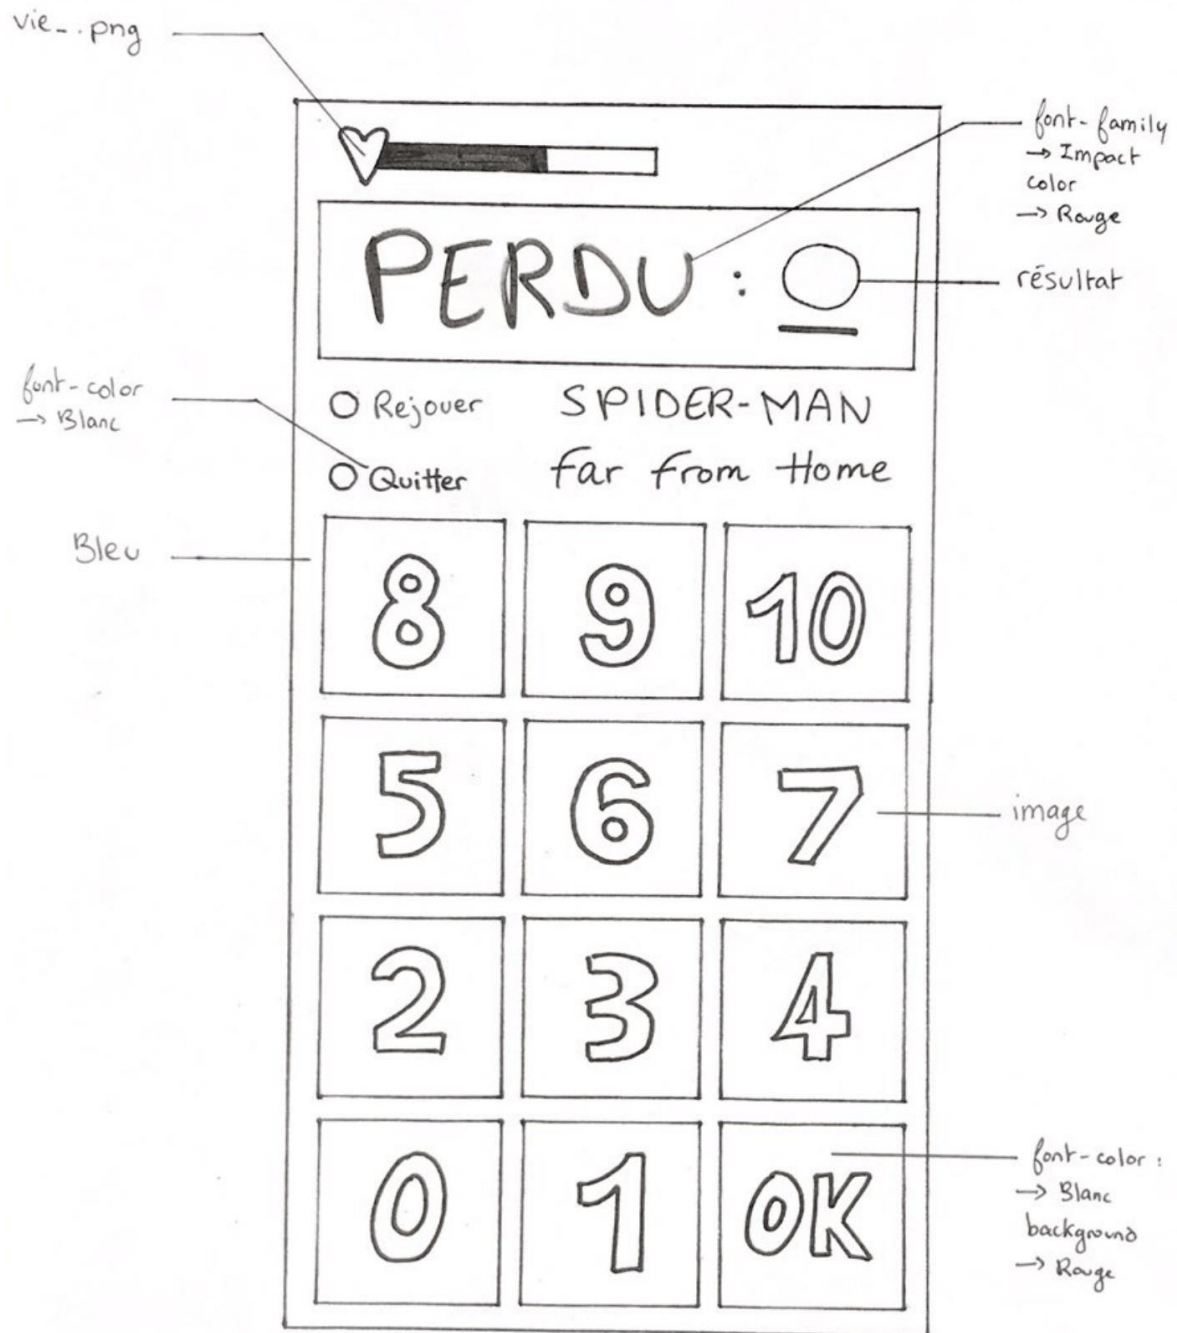 vie_..png
font-family
→ Impact
color
→ Rouge
PERDU :
résultat
font-color
→ Blanc
Rejouer
SPIDER-MAN
Quitter
far from Home
Bleu
8 9 10
5 6 7
image
2 3 4
0 1 OK
font-color :
→ Blanc
background
→ Rouge